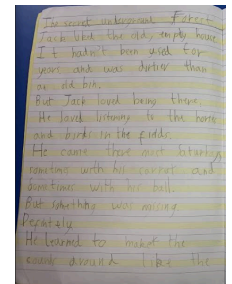 The secret underground Forest
Jack liked the old, empty house
It hadn't been used for
years and was dirtier than
an old bin.
But Jack loved being there.
He loved listening to the horses
and birds in the fields.
He came there most Saturdays
sometimes with his and
sometimes with his ball.
But something was missing

He learned to the
sounds around like the